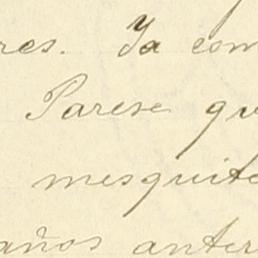 res. Ya com
Parese qu
mesquite
años anter